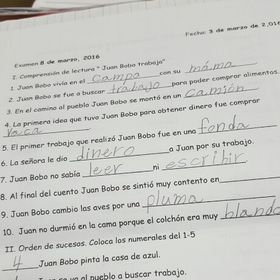 Fecha: 3 de marzo de 2,016
Examen 8 de marzo, 2016
I. Comprensión de lectura " Juan Bobo trabaja"
1. Juan Bobo vivía en el campo con su máma
2. Juan Bobo se fue a buscar trabajo para poder comprar alimentos.
3. En el camino al pueblo Juan Bobo se montó en un Camión
4. La primera idea que tuvo Juan Bobo para obtener dinero fue comprar
vaca
5. El primer trabajo que realizó Juan Bobo fue en una fonda
6. La señora le dio dinero a Juan por su trabajo.
7. Juan Bobo no sabía leer ni escribir
8. Al final del cuento Juan Bobo se sintió muy contento en
9. Juan Bobo cambio las aves por una pluma
10. Juan no durmió en la cama porque el colchón era muy blando
II. Orden de sucesos. Coloca los numerales del 1-5
4 Juan Bobo pinta la casa de azul.
Juan se va al pueblo a buscar trabajo.